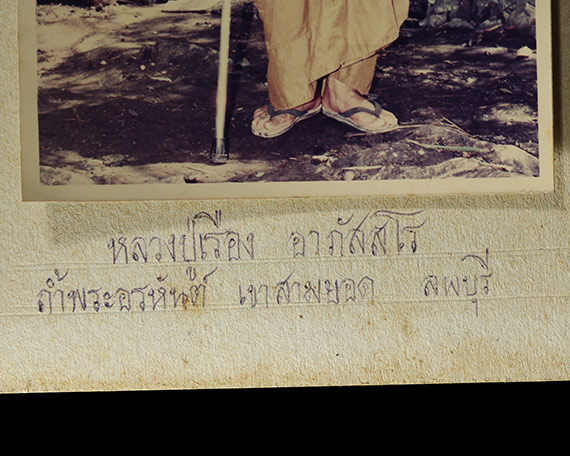 หลวงปู่เรือง อาภัสสโร
ถ้ำพระอรหันต์ เขาสามยอด ลพบุรี